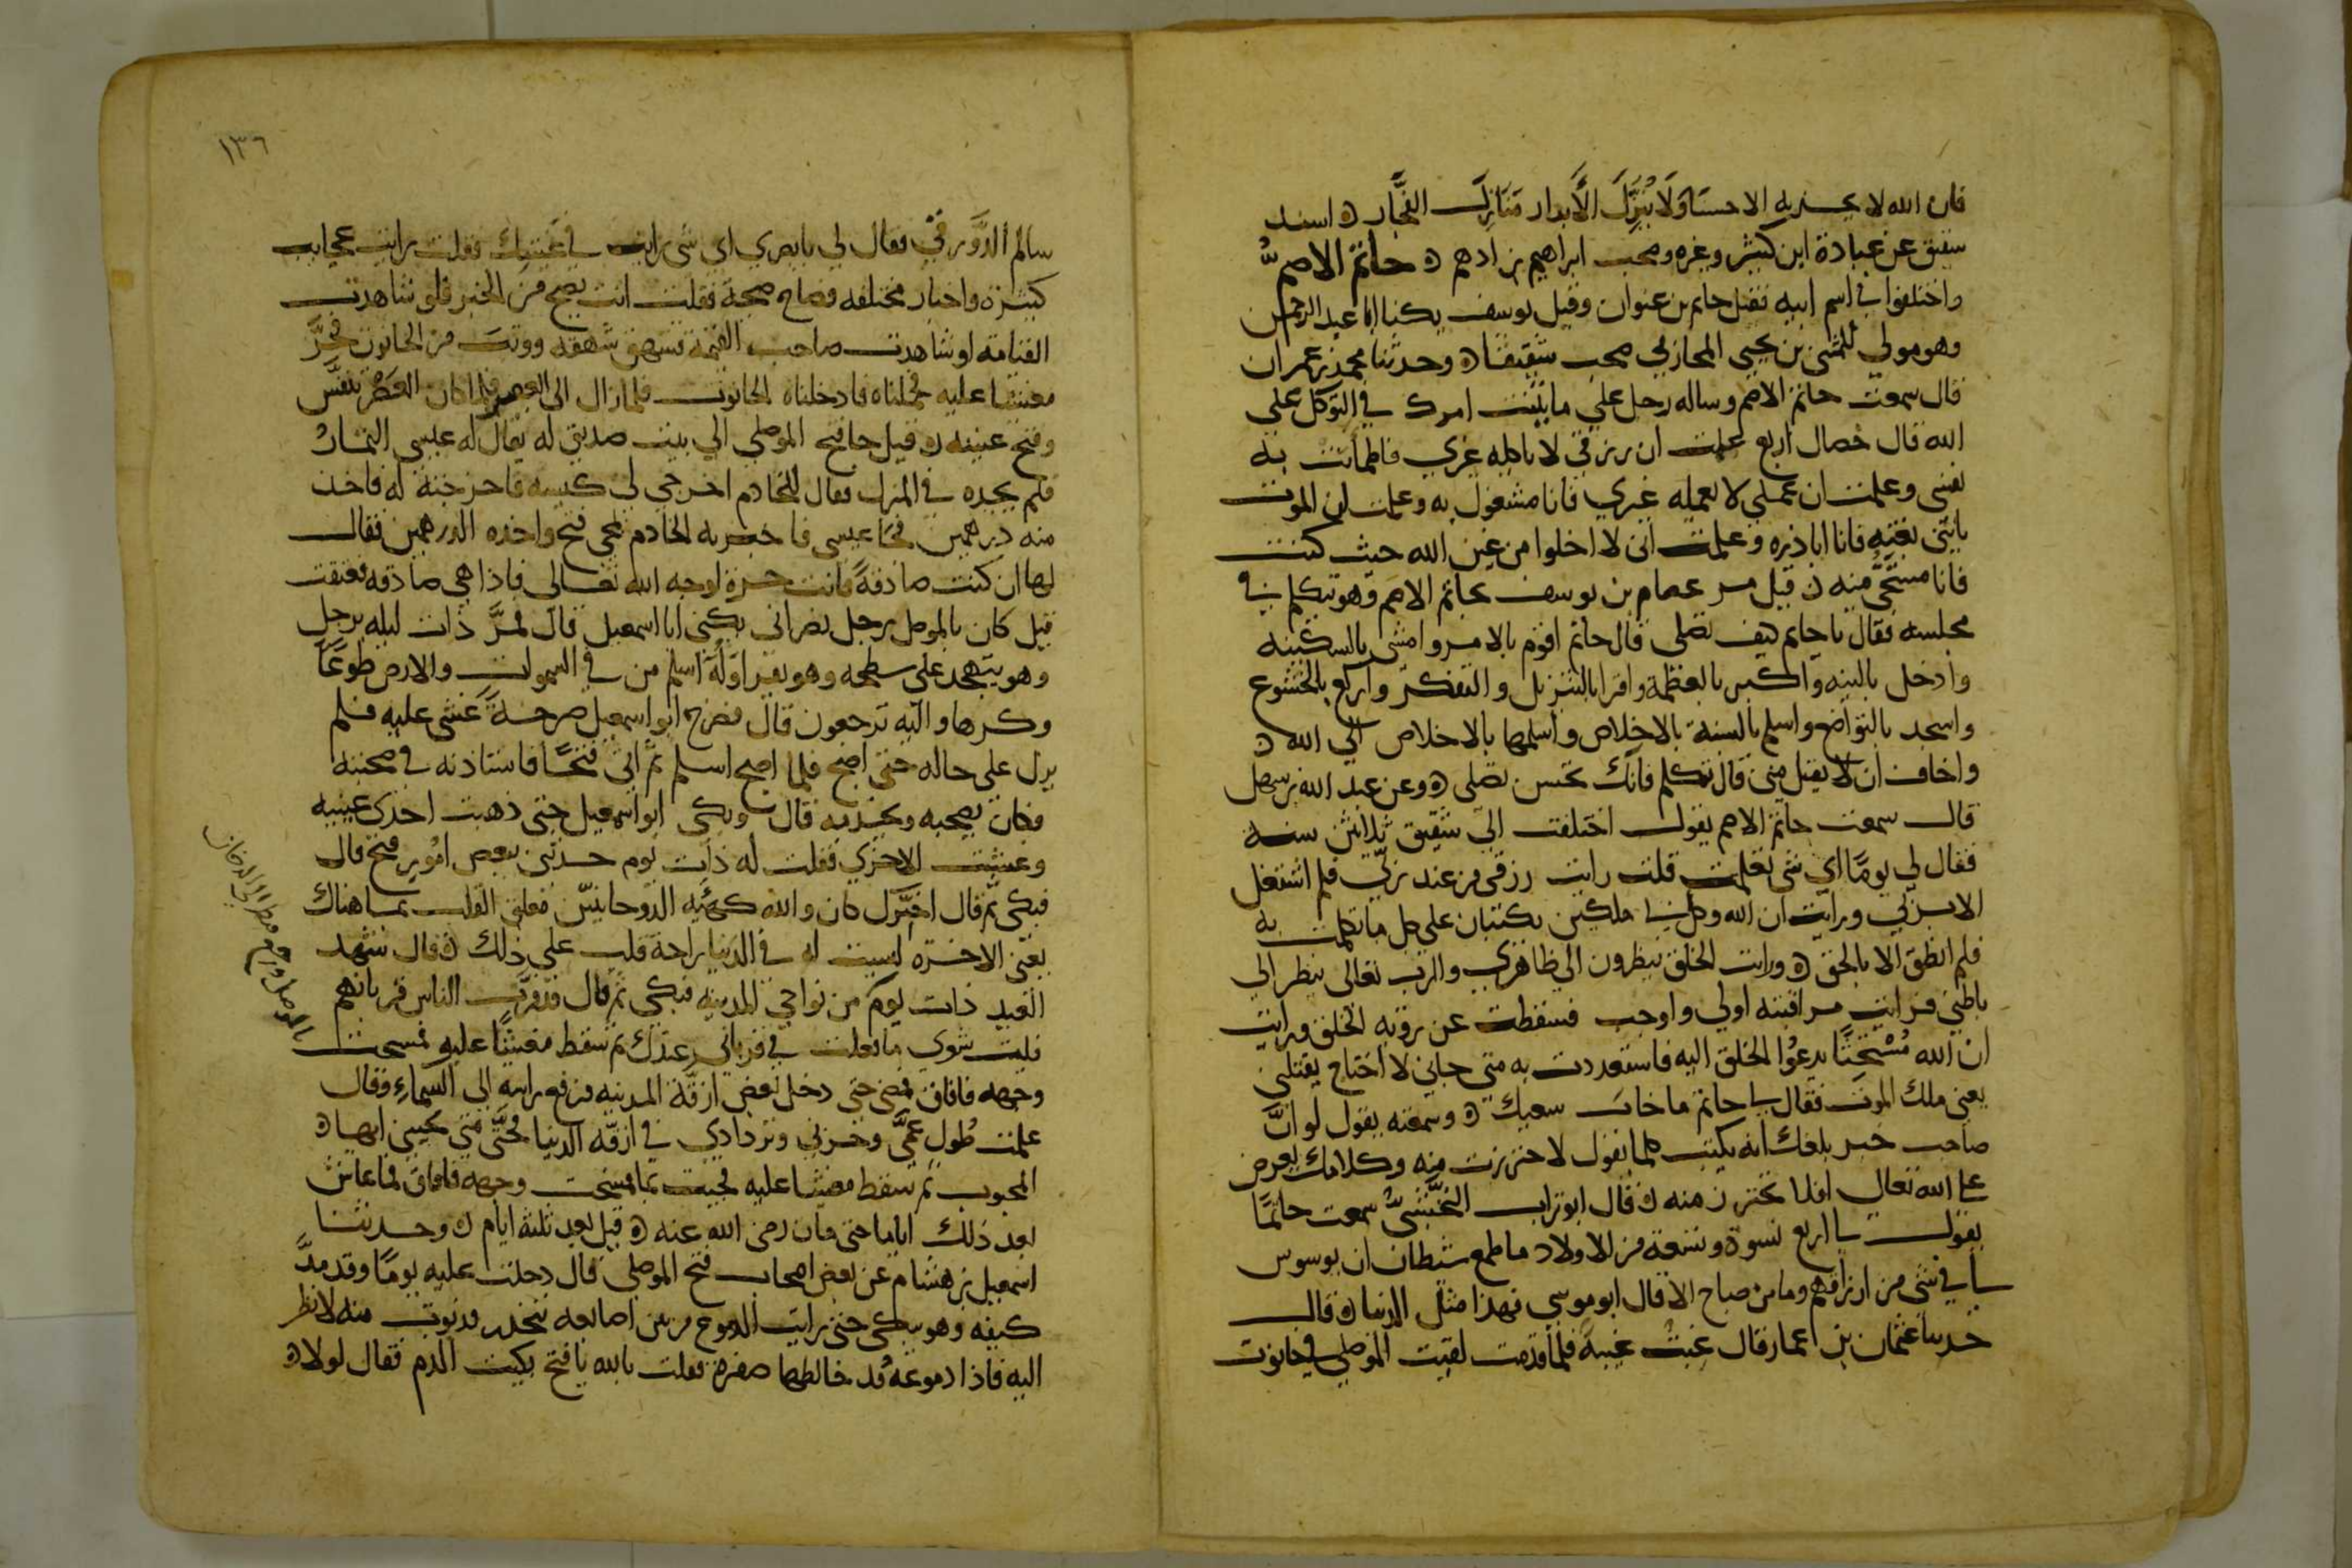 فان الله لا يجزيه الا حسنا ولا ينزل الابرار منازل الفجار ه اسند
شقيق عن عبادة ابن كثير وغيره وصحب ابراهيم بن ادهم ه حاتم الاصم
واختلفوا في اسم ابيه فقيل حاتم بن عنوان وقيل يوسف يكنا ابا عبد الرحمن
وهو مولي للمثنى بن يحيى المحاربي صحب شقيقا ه وحدثنا محمد بن عمران
قال سمعت حاتم الاصم وساله رجل علي ما بنيت امرك في التوكل على
الله قال خصال اربع علمت ان رزقي لا ياكله غيري فاطمانت به
نفسي وعلمت ان عملي لا يعمله غيري فانا مشغول به وعلمت ان الموت
ياتي بغتة فانا ابادره وعلمت اني لا اخلوا من عين الله حيث كنت
فانا مستحي منه ه قيل مر عصام بن يوسف بحاتم الاصم وهو يتكلم في
مجلسه فقال يا حاتم كيف تصلي قال حاتم اقوم بالامر وامشي بالسكينه
وادخل بالنيه واكبر بالعظمة واقرا بالترتيل والتفكر واركع بالخشوع
واسجد بالتواضع واسلم بالسنة بالاخلاص واسلمها بالاخلاص الي الله ه
واخاف ان لا يقبل مني قال تكلم فانك تحسن تصلي ه وعن عبد الله بن سهل
قال سمعت حاتم الاصم يقول اختلفت الي شقيق ثلاثين سنة
فقال لي يوما اي شي تعلمت قلت رايت رزقي من عند ربي فلم اشتغل
الا بربي ورايت ان الله وكل بي ملكين يكتبان علي كل ما تكلمت به
فلم انطق الا بالحق ه ورايت الخلق ينظرون الي ظاهري والرب تعالى ينظر الي
باطني فرايت مراقبته اولي واوجب فسقطت عن رؤية الخلق ورايت
ان الله مستحثا يدعوا الخلق اليه فاستعددت به متي جاني لا احتاج يقتلني
يعني ملك الموت فقال يا حاتم ما خاب سعيك ه وسمعته يقول لو ان
صاحب خبر بلغك انه يكتب كلما تقول لاحترزت منه وكلامك يعرض
على الله تعالي افلا تحترز منه ه قال ابو تراب النخشبي سمعت حاتما
يقول لي اربع نسوة وتسعة من الاولاد ما طمع شيطان ان يوسوس
لي في شي من ارزاقهم وما من صباح الا قال ابو موسى فهذا مثل الدنيا ه قال
حدثنا عثمان بن عمار قال غبت غيبة فلما قدمت لقيت الموصلي في حانوت
١٣٦
سالم الدورقي فقال لي يا بصري اي شي رايت في غيبتك فقلت رايت عجايب
كثيرة واخبار مختلفه فصاح صيحة فقلت انت تصيح من الخبر فلو شاهدت
القيامه او شاهدت صاحب القيمة فشهق شهقه ووثب من الحانوت فخر
مغشيا عليه فحملناه فادخلناه الحانوت فلما زال الى العصر فلما كان العصر تنفس
وفتح عينيه ه قيل جا فتح الموصلي الي بيت صديق له يقال له عيسى التمار
فلم يجده في المنزل فقال للخادم اخرجي لي كيسه فاخرجته له فاخذ
منه درهمين فجا عيسى فاخبرته الخادم بمجي فتح واخذه الدرهمين فقال
لها ان كنت صادقة فانت حرة لوجه الله تعالى فاذا هي صادقه فعتقت
قيل كان بالموصل رجل نصراني يكنى ابا اسمعيل قال فمر ذات ليله برجل
وهو يتهجد على سطحه وهو يقرا وله اسلم من في السموات والارض طوعا
وكرها واليه ترجعون قال فصرخ ابو اسمعيل صرخة غشي عليه فلم
يزل على حاله حتى اصبح فلما اصبح اسلم ثم اتى فتحا فاستاذنه في صحبته
فكان يصحبه ويخدمه قال وبكى ابو اسمعيل حتى ذهبت احدى عينيه
وعشيت الاخري فقلت له ذات يوم حدثني ببعض امور فتح قال
فبكى ثم قال اخبرك كان والله كهيئه الروحانيين معلق القلب بما هناك
يعني الاخره ليست له في الدنيا راحة قلت علي ذلك ه قال شهد
العيد ذات يوم من نواحي المدينه فبكى ثم قال قد قرب الناس قربانهم
فليت شعري ما فعلت في قرباني عندك ثم سقط مغشيا عليه فمسحت
وجهه فافاق فمضى حتى دخل بعض ازقة المدينه فرفع راسه الى السماء وقال
علمت طول غمي وحزني وتردادي في ازقه الدنيا فحتى متى تحبسني ايها
المحبوب ثم سقط مغشيا عليه فجيت بما فمسحت وجهه فافاق فما عاش
بعد ذلك اياما حتى مات رضي الله عنه ه قيل بعد ثلثة ايام ه وحدثنا
اسمعيل بن هشام عن بعض اصحاب فتح الموصلي قال دخلت عليه يوما وقد مد
كفيه وهو يبكي حتى رايت الدموع من بين اصابعه تنحدر فدنوت منه لانظر
اليه فاذا دموعه قد خالطها صفرة فقلت بالله يا فتح بكيت الدم فقال لولا